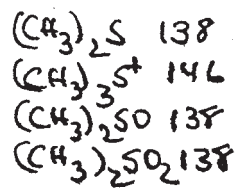 (CH₃)₂S 138
(CH₃)₃S⁺ 146
(CH₃)₂SO 138
(CH₃)₂SO₂ 138